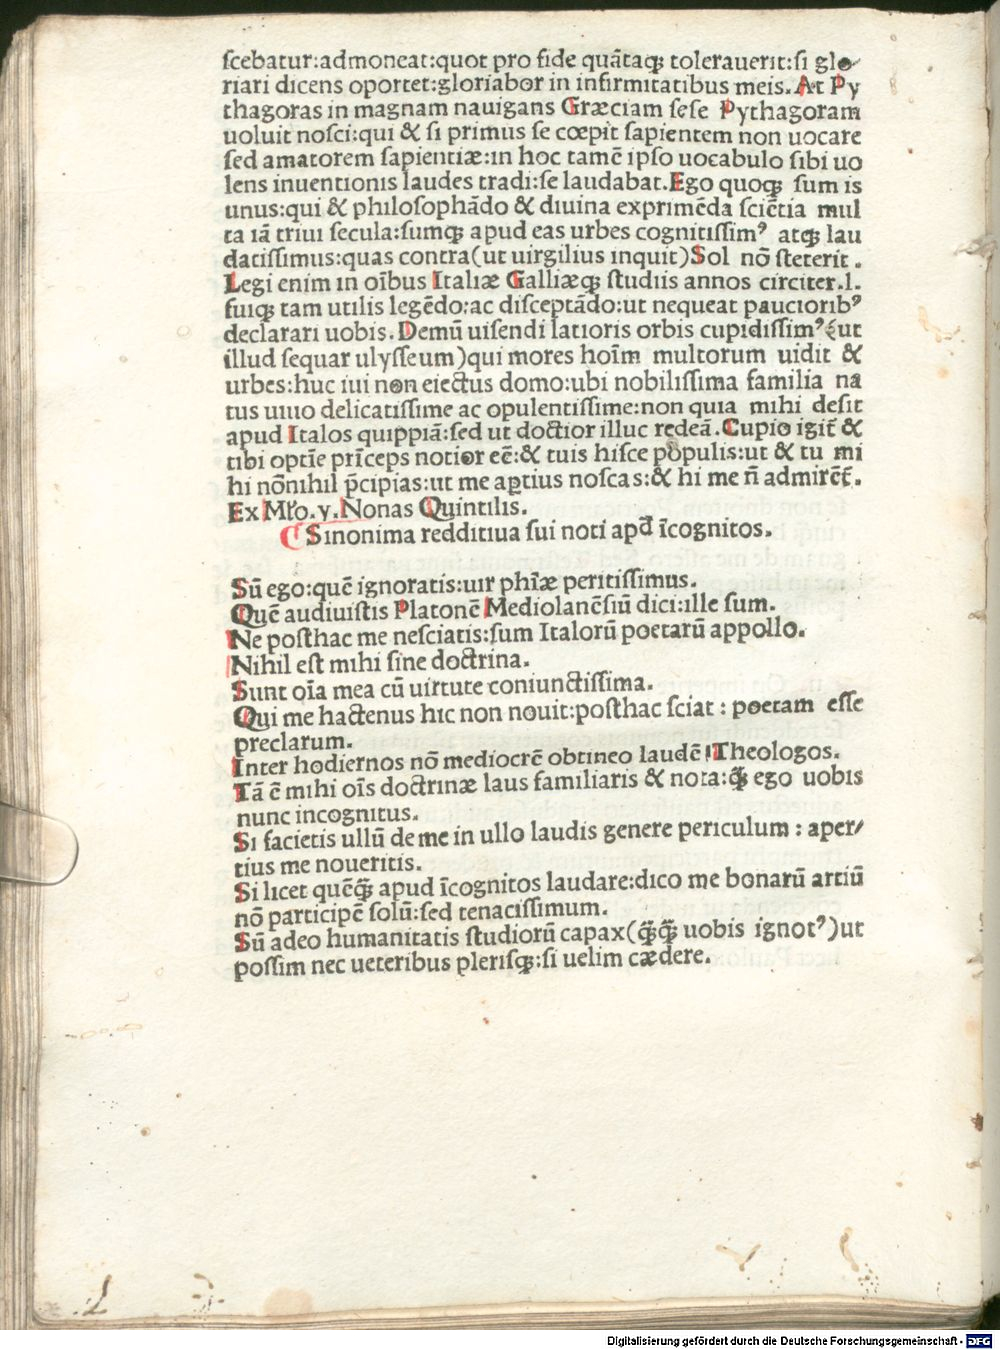 scebatur:admoneat:quot pro fide quātaqȝ tolerauerit:si glo
riari dicens oportet:gloriabor in infirmitatibus meis. At Py
thagoras in magnam nauigans Græciam sese Pythagoram
uoluit nosci:qui & si primus se cœpit sapientem non uocare
sed amatorem sapientiæ:in hoc tamē ipso uocabulo sibi uo
lens inuentionis laudes tradi:se laudabat. Ego quoqȝ sum is
unus:qui & philosophādo & diuina exprimēda sciētia mul
ta iā triui secula:sumqȝ apud eas urbes cognitissimꝰ atqȝ lau
datissimus:quas contra(ut uirgilius inquit)Sol nō steterit.
Legi enim in oībus Italiæ Galliæqȝ studiis annos circiter.l.
fuiqȝ tam utilis legēdo:ac disceptādo:ut nequeat pauctioribꝰ
declarari uobis. Demū uisendi latioris orbis cupidissimꝰ(ut
illud sequar ulysseum)qui mores hoīm multorum uidit &
urbes:huc iui non eiectus domo:ubi nobilissima familia na
tus uiuo delicatissime ac opulentissime:non quia mihi desit
apud Italos quippiā:sed ut doctior illuc redeā. Cupio igit̄ &
tibi optīe prīceps notior eē:& tuis hisce populis:ut & tu mi
hi nōnihil p̄cipias:ut me aptius noscas:& hi me n̄ admirēt̄.
Ex Mƚo.y.Nonas Quintilis.
Sinonima redditiua sui noti apd̄ īcognitos.
Sū ego:quē ignoratis:uir phīæ peritissimus.
Quē audiuistis Platonē Mediolanēsiū dici:ille sum.
Ne posthac me nesciatis:sum Italorū poetarū appollo.
Nihil est mihi sine doctrina.
Sunt oīa mea cū uirtute coniunctissima.
Qui me hactenus hic non nouit:posthac sciat : poetam esse
preclarum.
Inter hodiernos nō mediocrē obtineo laudē Theologos.
Tā ē mihi oīs doctrinæ laus familiaris & nota:q̄ȝ ego uobis
nunc incognitus.
Si facietis ullū de me in ullo laudis genere periculum : aper/
tius me noueritis.
Si licet quēq̄ȝ apud īcognitos laudare:dico me bonarū artiū
nō participē solū:sed tenacissimum.
Sū adeo humanitatis studiorū capax(q̄ȝq̄ȝ uobis ignotꝰ)ut
possim nec ueteribus plerisqȝ:si uelim cædere.
Digitalisierung gefördert durch die Deutsche Forschungsgemeinschaft - DFG